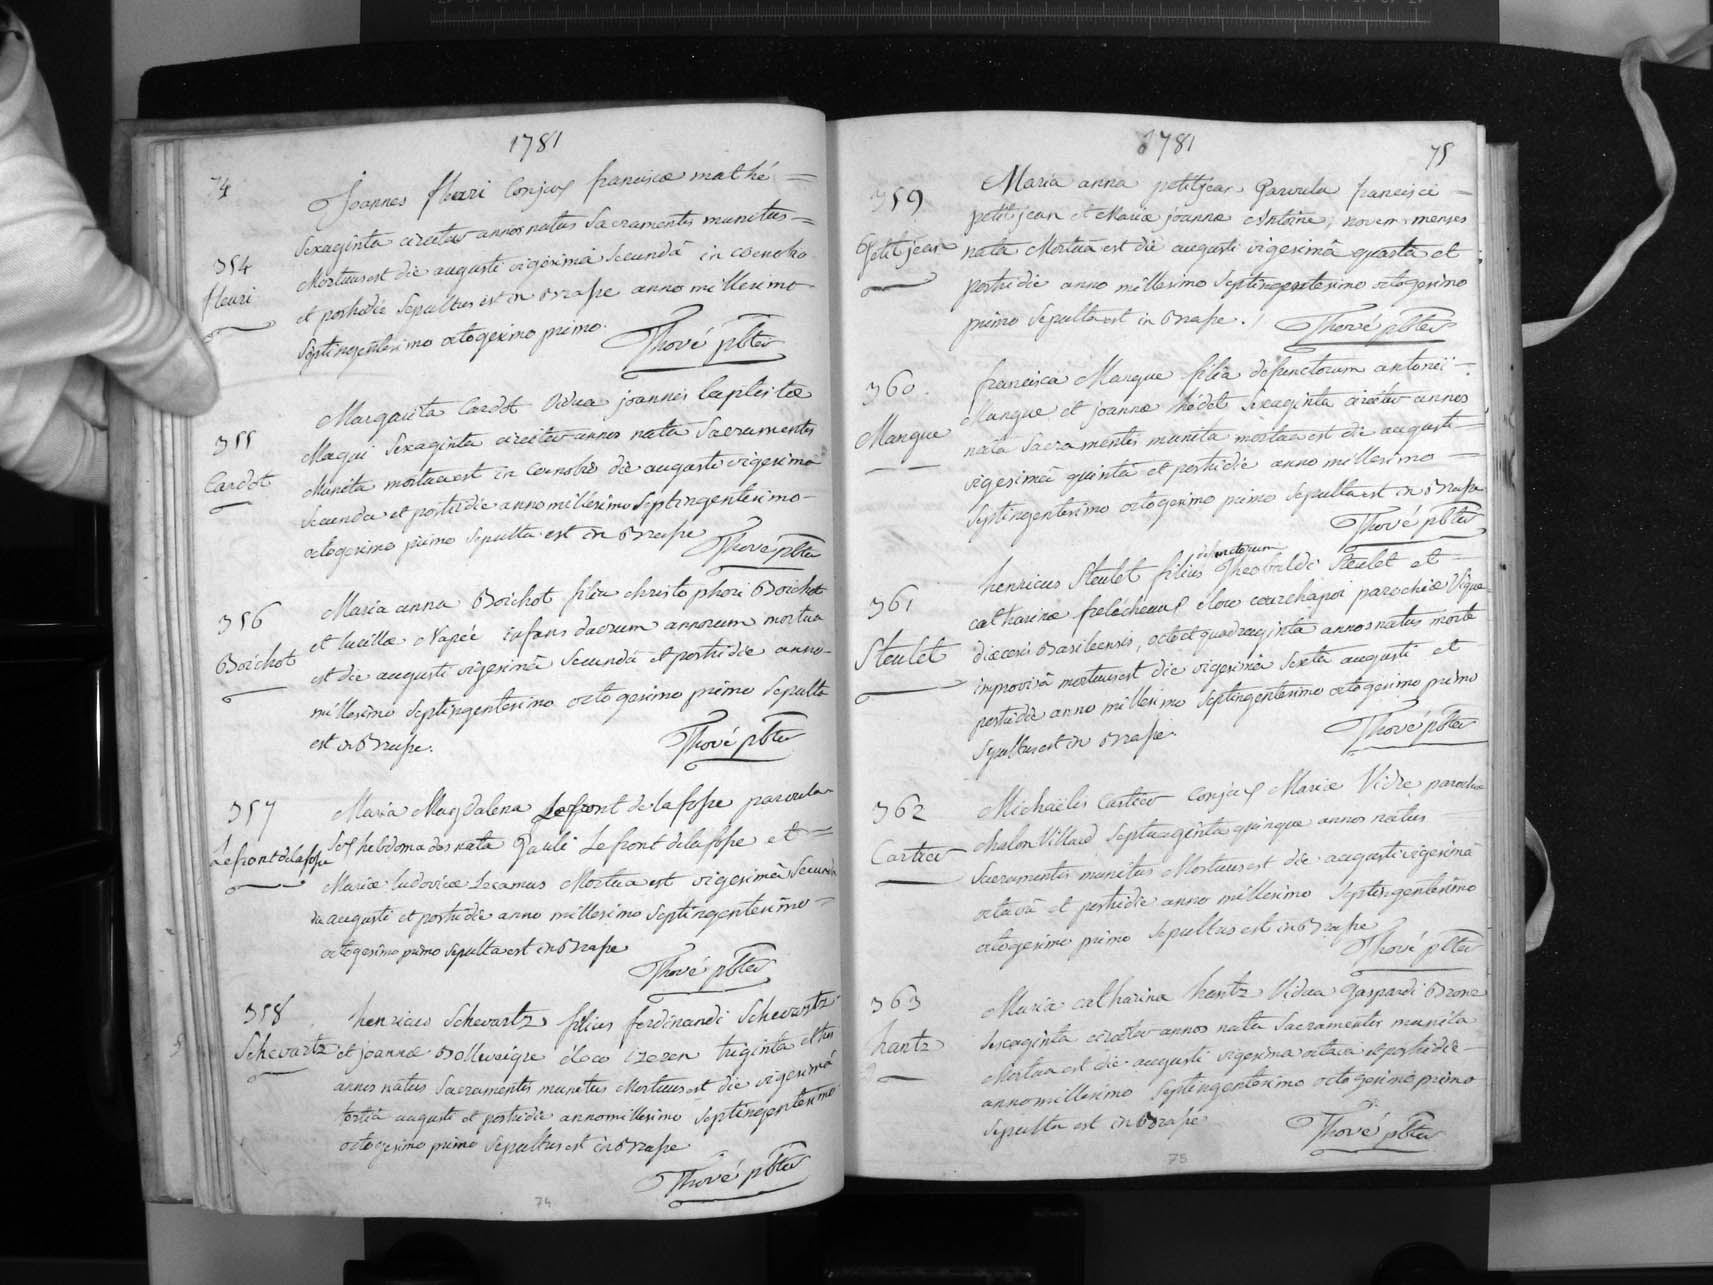 1781
74
Joannes fleuri Conjux franciscæ mathé =
sexaginta circiter annos natus Sacramentis munitus =
354
Mortuus est die augusti vigesimâ Secundâ in coenobio
fleuri
et postridie Sepultus est in Brasse anno millesimo
Septingentesimo octogesimo primo.
Thové pbter
Margarita Cardot Vidua joannis baptistæ
355
Magui Sexaginta circiter annos nata Sacramentis
Cardot
Munita mortua est in Coenobio die augusti vigesimâ
Secunda et postridie anno millesimo Septingentesimo -
octogesimo primo Sepulta est in Brasse
Thové pbter
356
Maria anna Boichot filia christophori Boichot
et lucillæ infans duorum annorum mortua
Boichot
est die augusti vigesimâ Secundâ et postridie anno -
millesimo Septingentesimo octogesimo primo Sepulta
est in Brasse.
Thové pbter
357
Maria Magdalena Lefront de la fosse parvula
Sex hebdomadas nata Pauli Lefront delafosse et =
Lefront delafosse
Mariæ ludovicæ Lecamus Mortua est vigesimâ Secun
da augusti et postridie anno millesimo Septingentesimo =
octogesimo primo Sepulta est in Brasse
Thové pbter
358
henricus Schevartz filius ferdinandi Schevartz
Schevartz
et joannæ è loco triginta et tres
annos natus Sacramentis munitus Mortuus est die vigesimâ
tertiâ augusti et postridie anno millesimo Septingentesimo
octogesimo primo Sepultus est in Brasse
Thové pbter
74
1781
75
359
Maria anna petitjean Parvula francisci -
petitjean et Mariæ joannæ Antoine, novem menses
Petitjean
nata Mortua est die augusti vigesimâ quartâ et
postridie anno millesimo Septingentesimo octogesimo
primo Sepulta est in Brasse.
Thové pbter
360.
francisca Mangue filia defunctorum antonii -
Mangue et joannæ hédot sexaginta circiter annos
Mangue
nata Sacramentis munita mortua est die augusti -
vigesimâ quintâ et postridie anno millesimo -
Septingentesimo octogesimo primo Sepulta est in Brasse
Thové pbter
defunctorum
361
henricus Steulet filius Theobaldi Steulet et =
catharinæ frelécheux è loco courchapoi parochiæ Vique
Steulet
diæcesis Basileensis, octo et quadraginta annos natus morte
improvisâ mortuus est die vigesimâ Sextâ augusti et -
postridie anno millesimo Septingentesimo octogesimo primo
Sepultus est in Brasse.
Thové pbter
362
Michaëlis Cartier Conjux Mariæ Vidre parochiæ
chalon Villard Septuaginta quinque annos natus -
Cartier
Sacramentis munitus Mortuus est die augusti vigesimâ
octavâ et postridie anno millesimo Septingentesimo
octogesimo primo Sepultus est in Brasse
Thové pbter
363
Maria catharina hentz Vidua Gaspardi
hantz
Sexaginta circiter annos nata Sacramentis munita
Mortua est die augusti vigesima octavâ et postridie -
anno millesimo Septingentesimo octogesimo primo
Sepulta est in Brasse
Thové pbter
75